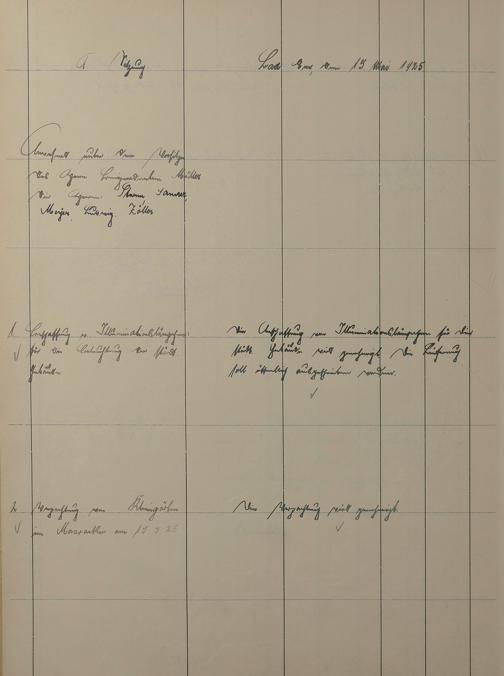 Sitzung
Bad Ems, den 13. Mai 1925
Anwesend unter dem Vorsitze
des Herrn Beigeordneten Müller
die Herren
Meyer, Ludwig, Zöller
1. Beschaffung v. Illuminationslämpchen
für die Beleuchtung der städt.
Gebäude
Die Anschaffung von Illuminationslämpchen für die
städt. Gebäude wird genehmigt. Die Lieferung
soll öffentlich ausgeschrieben werden.
2. Verpachtung von
im
Die Verpachtung wird genehmigt.